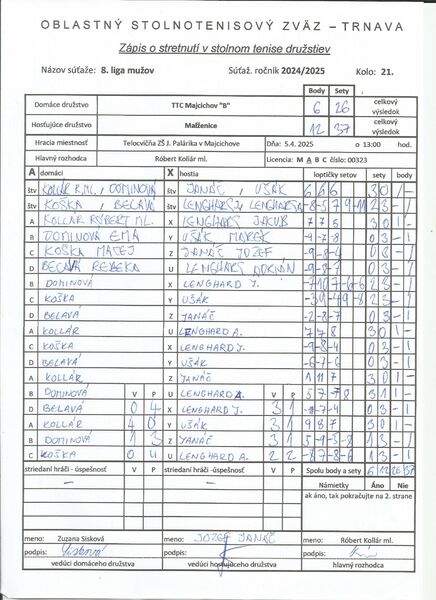 OBLASTNÝ STOLNOTENISOVÝ ZVÄZ – TRNAVA
Zápis o stretnutí v stolnom tenise družstiev
Názov súťaže: 8. liga mužov Súťaž. ročník 2024/2025 Kolo: 21.
Body Sety
Domáce družstvo TTC Majcichov "B" 6 26 celkový výsledok
Hosťujúce družstvo Malženice 12 37 celkový výsledok
Hracia miestnosť Telocvičňa ZŠ J. Palárika v Majcichove Dňa: 5.4. 2025 o 13:00 hod.
Hlavný rozhodca Róbert Kollár ml. Licencia: M A B C číslo: 00323
A domáci X hostia loptičky setov sety body
štv KOLLÁR R. ML., DOMINOVÁ štv JANÁČ, UŠÁK 6 6 6 3 0 1 -
štv KOŠKA, BELAVÁ štv 2 3 - 1
A KOLLÁR RÓBERT ML. X LENGHARD JAKUB 7 7 5 3 0 1 -
B DOMINOVÁ EMA Y UŠÁK MAREK -9 -7 -8 0 3 - 1
C KOŠKA MATEJ Z JANÁČ JOZEF -9 -8 -4 0 3 - 1
D BELAVÁ REBEKA U LENGHARD -9 -8 -7 0 3 - 1
B DOMINOVÁ X LENGHARD J. 2 3 - 1
C KOŠKA Y UŠÁK 2 3 - 1
D BELAVÁ Z JANÁČ -2 -8 -7 0 3 - 1
A KOLLÁR U LENGHARD A. 7 7 8 3 0 1 -
C KOŠKA X LENGHARD J. -9 -8 -4 0 3 - 1
D BELAVÁ Y UŠÁK -6 -7 -6 0 3 - 1
A KOLLÁR Z JANÁČ 3 0 1 -
B DOMINOVÁ V P U LENGHARD A. V P 3 1 1 -
D BELAVÁ 0 4 X LENGHARD J. 3 1 - 1
A KOLLÁR 4 0 Y UŠÁK 3 1 9 8 7 3 0 1 -
B DOMINOVÁ 1 3 Z JANÁČ 3 1 1 3 - 1
C KOŠKA 0 4 U LENGHARD A. 2 2 1 3 - 1
striedaní hráči - úspešnosť V P striedaní hráči -úspešnosť V P Spolu body a sety 6 12 26 37
Námietky Áno Nie
ak áno, tak pokračujte na 2. strane
meno: Zuzana Sisková meno: JOZEF JANÁČ meno: Róbert Kollár ml.
podpis: podpis: podpis:
vedúci domáceho družstva vedúci hosťujúceho družstva hlavný rozhodca